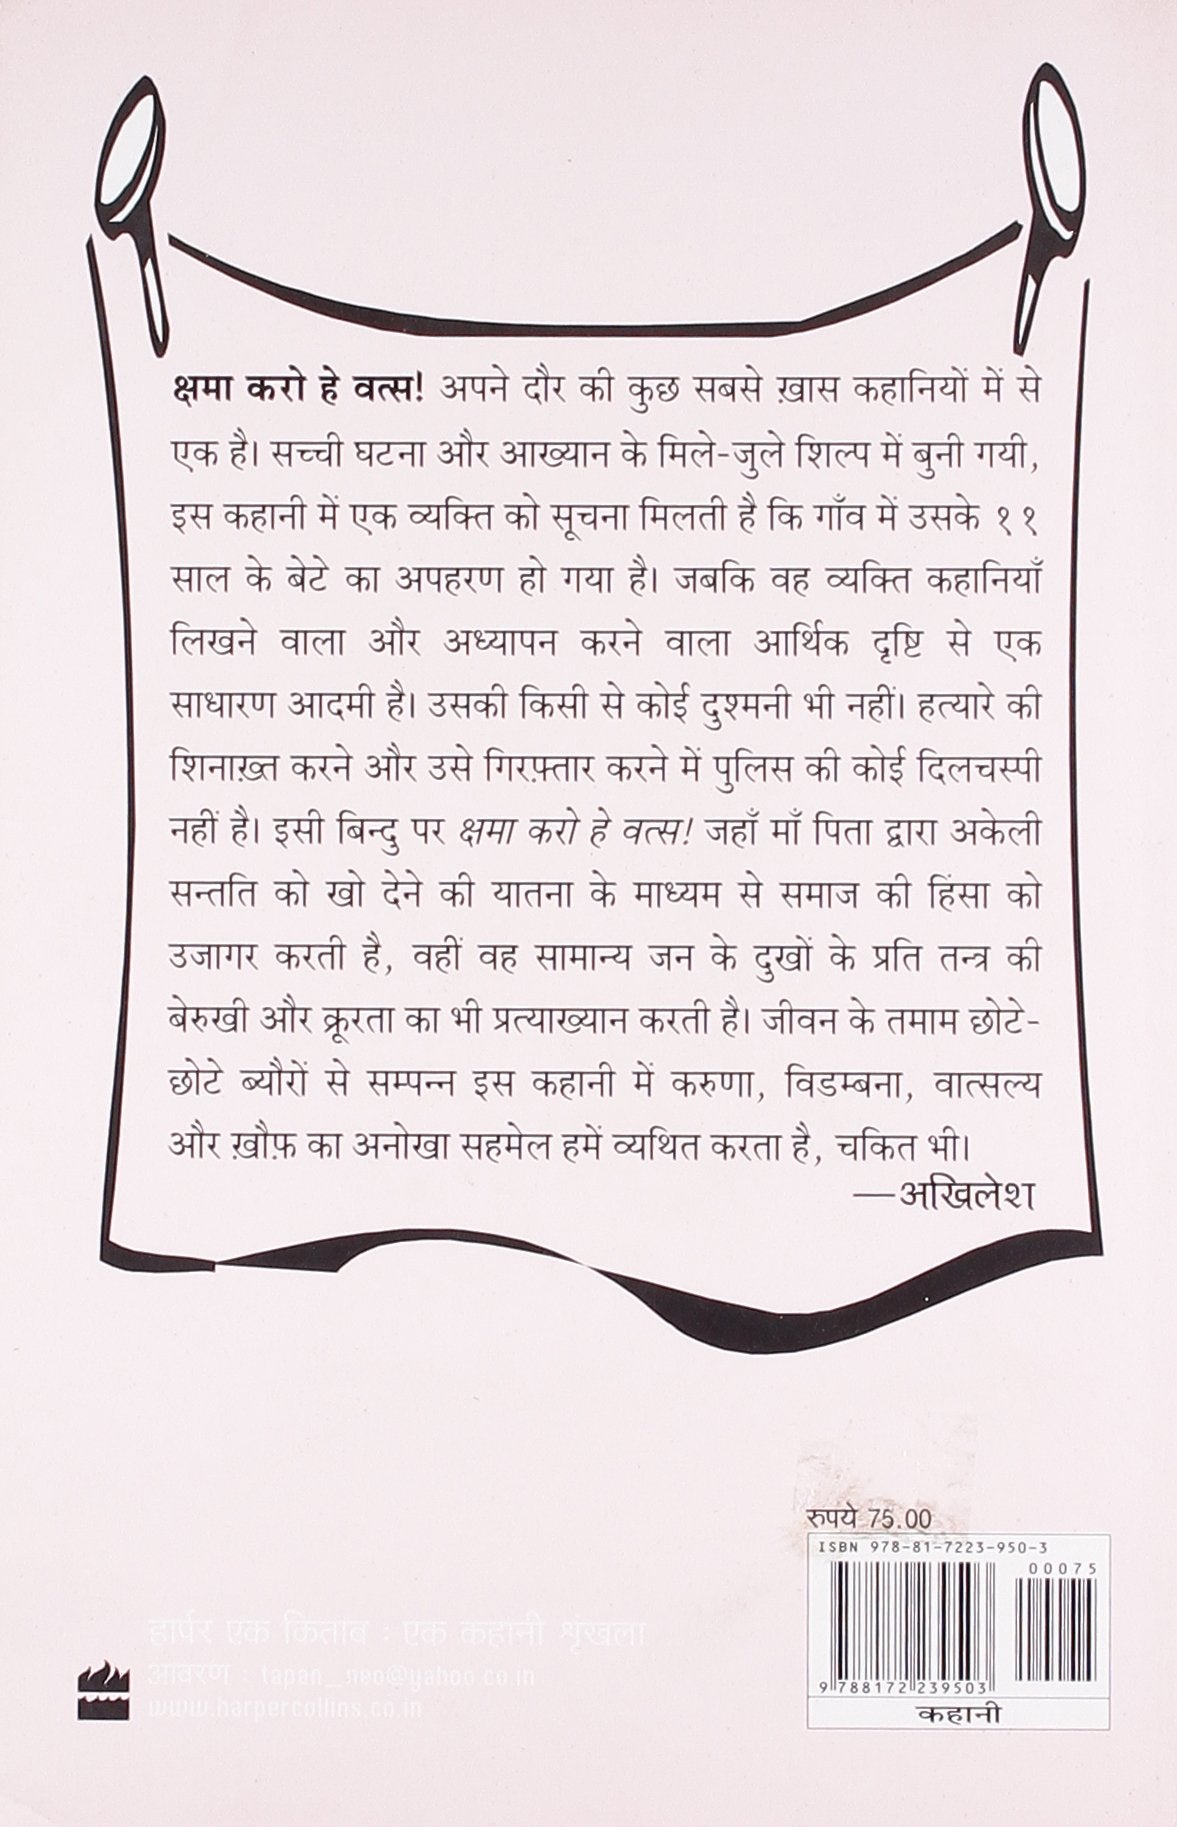 क्षमा करो हे वत्स! अपने दौर की कुछ सबसे ख़ास कहानियों में से
एक है। सच्ची घटना और आख्यान के मिले-जुले शिल्प में बुनी गयी,
इस कहानी में एक व्यक्ति को सूचना मिलती है कि गाँव में उसके ११
साल के बेटे का अपहरण हो गया है। जबकि वह व्यक्ति कहानियाँ
लिखने वाला और अध्यापन करने वाला आर्थिक दृष्टि से एक
साधारण आदमी है। उसकी किसी से कोई दुश्मनी भी नहीं। हत्यारे की
शिनाख़्त करने और उसे गिरफ़्तार करने में पुलिस की कोई दिलचस्पी
नहीं है। इसी बिन्दु पर क्षमा करो हे वत्स! जहाँ माँ पिता द्वारा अकेली
सन्तति को खो देने की यातना के माध्यम से समाज की हिंसा को
उजागर करती है, वहीं वह सामान्य जन के दुखों के प्रति तन्त्र की
बेरुखी और क्रूरता का भी प्रत्याख्यान करती है। जीवन के तमाम छोटे-
छोटे ब्यौरों से सम्पन्न इस कहानी में करुणा, विडम्बना, वात्सल्य
और ख़ौफ़ का अनोखा सहमेल हमें व्यथित करता है, चकित भी।
—अखिलेश
रुपये 75.00
ISBN 978-81-7223-950-3
00075
9 788172 239503
कहानी
हार्पर एक किताब : एक कहानी शृंखला
आवरण : tapan_neo@yahoo.co.in
www.harpercollins.co.in